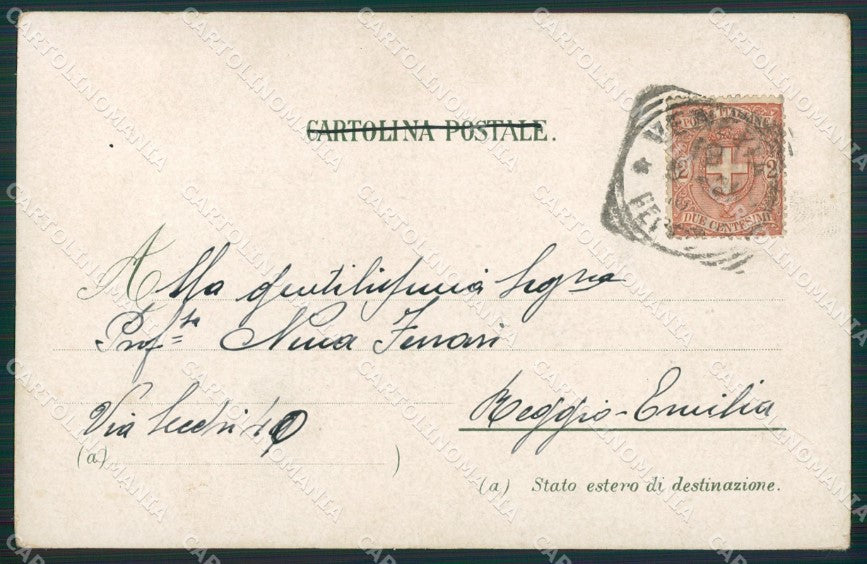 CARTOLINA POSTALE.
2 2
DUE CENTESIMI
Alla gentilissima Signa
Profssa Nina Ferrari
Via Secchi 10
Reggio-Emilia
(a) )
(a) Stato estero di destinazione.
CARTOLINOMANIA